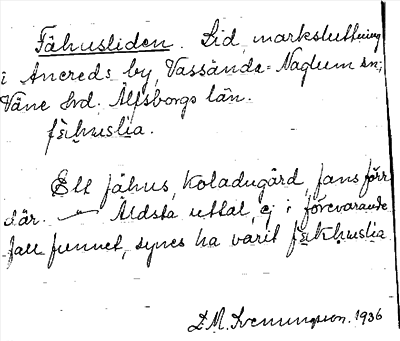 Fähusliden. Lid, marksluttning
i Ancreds by, Vassända-Naglum sn;
Väne hrd. Älfsborgs län.
fähuslia.
Ett fähus, koladugård, fans förr
där. — Äldsta uttal, ej i förevarande
fall funnet, synes ha varit fäkhuslia
D. M. Svenungsson. 1936